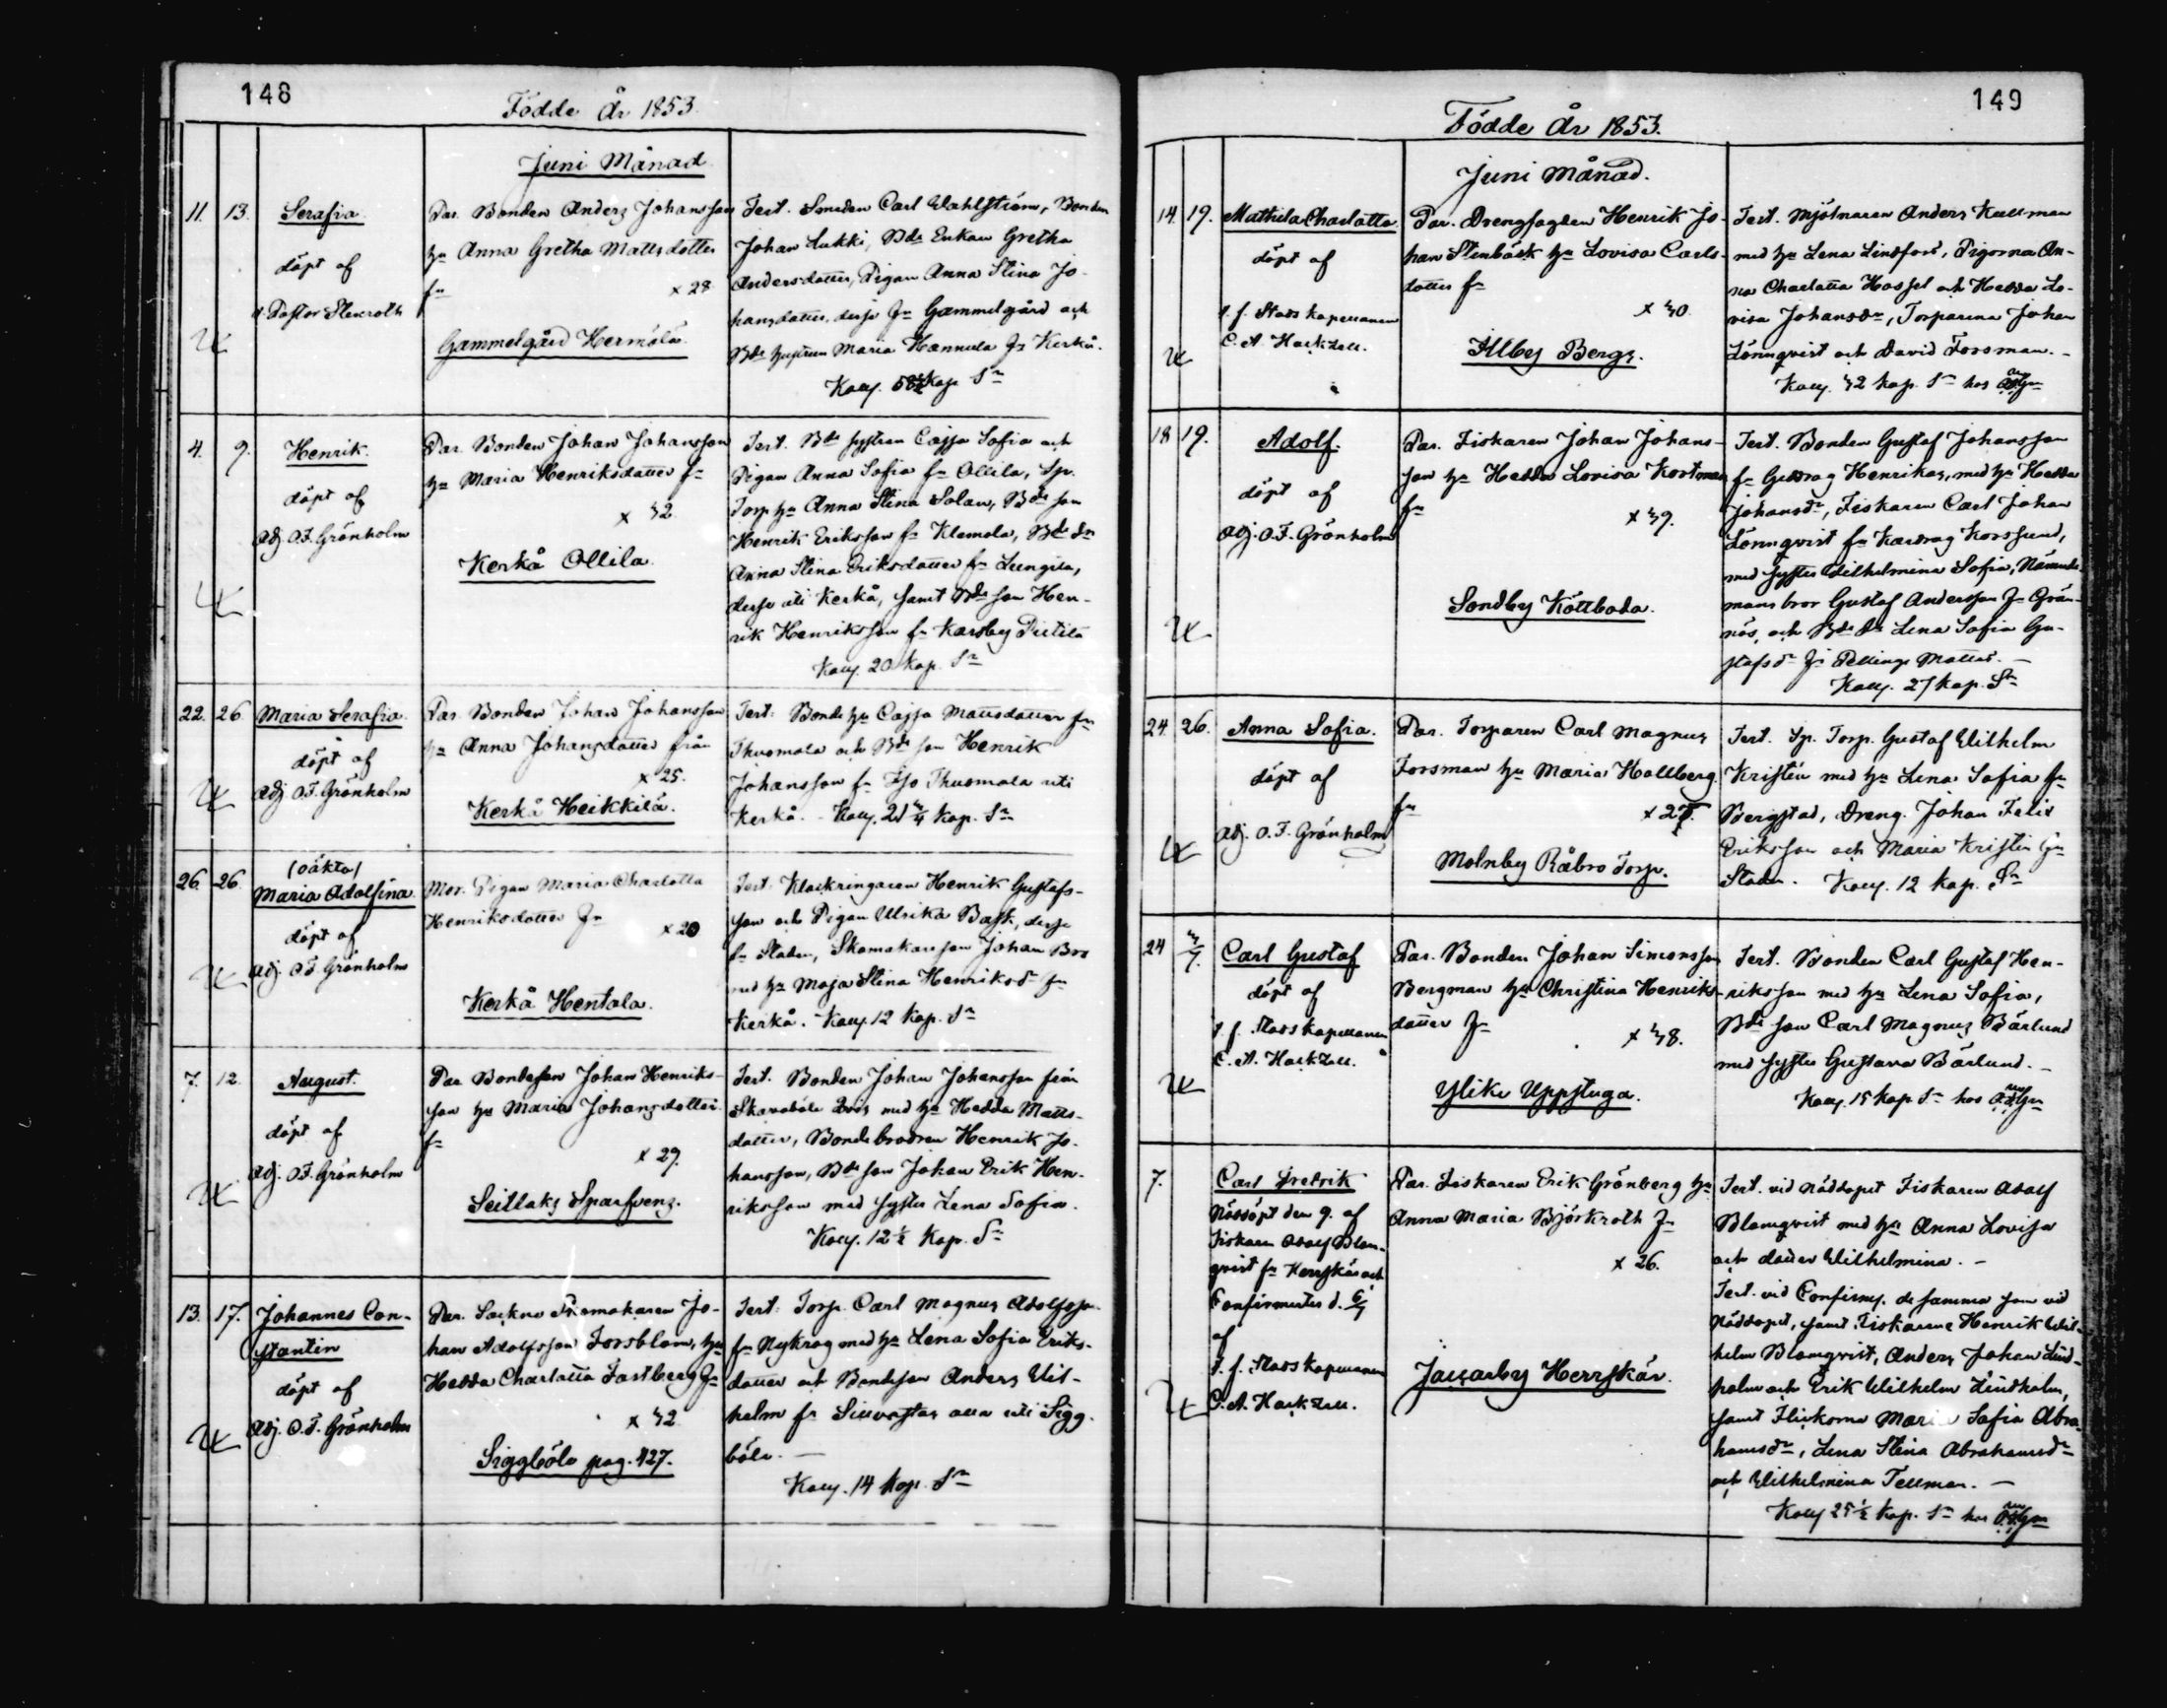 148
Födde År 1853.
Juni Månad
11. 13. Serafia
döpt af
v. Pastor Stenroth
Par. Bonden Anders Johansson
hu Anna Gretha Mattsdotter
fr
x 28
Gammelgård Hermölä
Test. Smeden Carl Wahlström, Bonden
Johan Lukki, Bde Enkan Gretha
Andersdotter, Pigan Anna Stina Jo-
hansdotter, desse fr Gammelgård och
Bde hustrun Maria Hannula fr Kerkå.
Koll. kop. Sr
4. 9. Henrik
döpt af
Adj. O.F. Grönholm
Par. Bonden Johan Johansson
hu Maria Henriksdotter fr
x 32
Kerkå Ollila
Test. Bde hustrun Cajsa Sofia och
Pigan Anna Sofia fr Ollila, Sp.
Torp hu Anna Stina Solan, Bde son
Henrik Eriksson fr Klemola, Bde dr
Anna Stina Eriksdotter fr
desse uti Kerkå, samt Bde son Hen-
rik Henriksson fr Karsby Pietilä
Koll. 20 kop. Sr
22. 26. Maria Serafia
döpt af
Adj O.F. Grönholm
Par. Bonden Johan Johansson
hu Anna Johansdotter från
x 25.
Kerkå Heikkilä.
Test: Bonde hu Cajsa Mattsdotter fr
Thuomala och Bde son Henrik
Johansson fr Iso Thuomala uti
Kerkå. - Koll. 21 3/4 kop. Sr
26. 26. (oäkta)
Maria Adolfina
döpt af
Adj. O.F. Grönholm
Mor. Pigan Maria Charlotta
Henriksdotter fr
x 20
Kerkå Hentala.
Test: Klockringaren Henrik Gustafs-
son och Pigan Ulrika Bask, desse
fr Staden, Skomakaren Johan Bos
med hu Maja Stina Henriksdr fr
Kerkå. Koll. 12 kop. Sr
7. 12. August.
döpt af
Adj. O.F. Grönholm
Par Bondeson Johan Henriks-
son hu Maria Johansdotter
fr
x 29.
Seitlaks Sparfvens.
Test. Bonden Johan Johansson från
Skavaböle med hu Hedda Matts-
dotter, Bonde brodren Henrik Jo-
hansson, Bde son Johan Erik Hen-
riksson med syster Lena Sofia.
Koll. 12 1/2 Kop. Sr
13. 17. Johannes Con-
stantin
döpt af
Adj. O.F. Grönholm
Par. Sockne Skomakaren Jo-
han Adolfsson Forsblom, hu
Hedda Charlotta Fastberg fr
x 32
Siggböle pag. 427.
Test: Torp. Carl Magnus Adolfsson
fr Nykrog med hu Lena Sofia Eriks-
dotter och Bondeson Anders Wil-
helm fr Sillvastas alla uti Sigg-
böle. -
Koll. 14 kop. Sr
149
Födde År 1853.
Juni Månad.
14. 19. Mathilda Charlotta
döpt af
t.f. Stads kapellanen
C. A. Hackzell.
Par. Drengfogden Henrik Jo-
han Stenbäck hu Lovisa Carls-
dotter fr
x 30.
Illby Bergs.
Test. Mjölnaren Anders Kullman
med hu Lena Lindfors, Pigorna An-
na Charlotta Hassel och Hedda Lo-
visa Johansdr, Torparena Johan
Lönnqvist och David Forsman. -
Koll. 32 kop. Sr hos
18 19. Adolf.
döpt af
Adj. O.F. Grönholm
Par. Fiskaren Johan Johans-
son hu Hedda Lovisa Kortman
fr
x 39.
Sondby Köttboda.
Test. Bonden Gustaf Johansson
fr Geddrag Henrikas, med hu Hedda
Johansdr, Fiskaren Carl Johan
Lönnqvist fr Kardrag Korssund,
med syster Wilhelmina Sofia, Nämnde-
mans bror Gustaf Andersson fr Grän-
näs, och Bde dr Lena Sofia Gu-
stafsdr fr Pellinge Mattas. -
Koll. 27 kop. Sr
24. 26. Anna Sofia.
döpt af
Adj. O.F. Grönholm
Par. Torparen Carl Magnus
Forsman hu Maria Hallberg.
fr
x 27.
Molnby Råbro Torp.
Test. Sp. Torp. Gustaf Wilhelm
Kristén med hu Lena Sofia fr
Bergstad, Dreng. Johan Felix
Eriksson och Maria Kristin fr
Staden. Koll. 12 kop. Sr
24 3/7. Carl Gustaf
döpt af
t.f. Stadskapellanen
C. A. Hackzell.
Par. Bonden Johan Simonsson
Bergman hu Christina Henriks-
dotter fr
x 38.
Ylike Uppstuga.
Test. Bonden Carl Gustaf Hen-
riksson med hu Lena Sofia,
Bde son Carl Magnus Bärlund
med syster Gustava Bärlund. -
Koll. 15 kop Sr hos
7. Carl Fredrik
Nöddöpt den 9. af
Fiskaren Adolf Blom-
qvist fr Herrskär och
Confirmertes d. 6/7
af
t.f. Stads kapellanen
C.A. Hackzell.
Par. Fiskaren Erik Grönberg hu
Anna Maria Björkroth fr
x 26.
Jackarby Herrskär.
Test. vid nöddopet Fiskaren Adolf
Blomqvist med hu Anna Lovisa
och dotter Wilhelmina. -
Test. vid Confirm. de samma som vid
Nöddopet, samt Fiskarene Henrik Wil-
helm Blomqvist, Anders Johan Lind-
holm och Erik Wilhelm Lindholm,
samt Flickorna Maria Sofia Abra-
hamsdr, Lena Stina Abrahamsdr
och Wilhelmina Tellman. -
Koll 25 1/2 kop. Sr hos